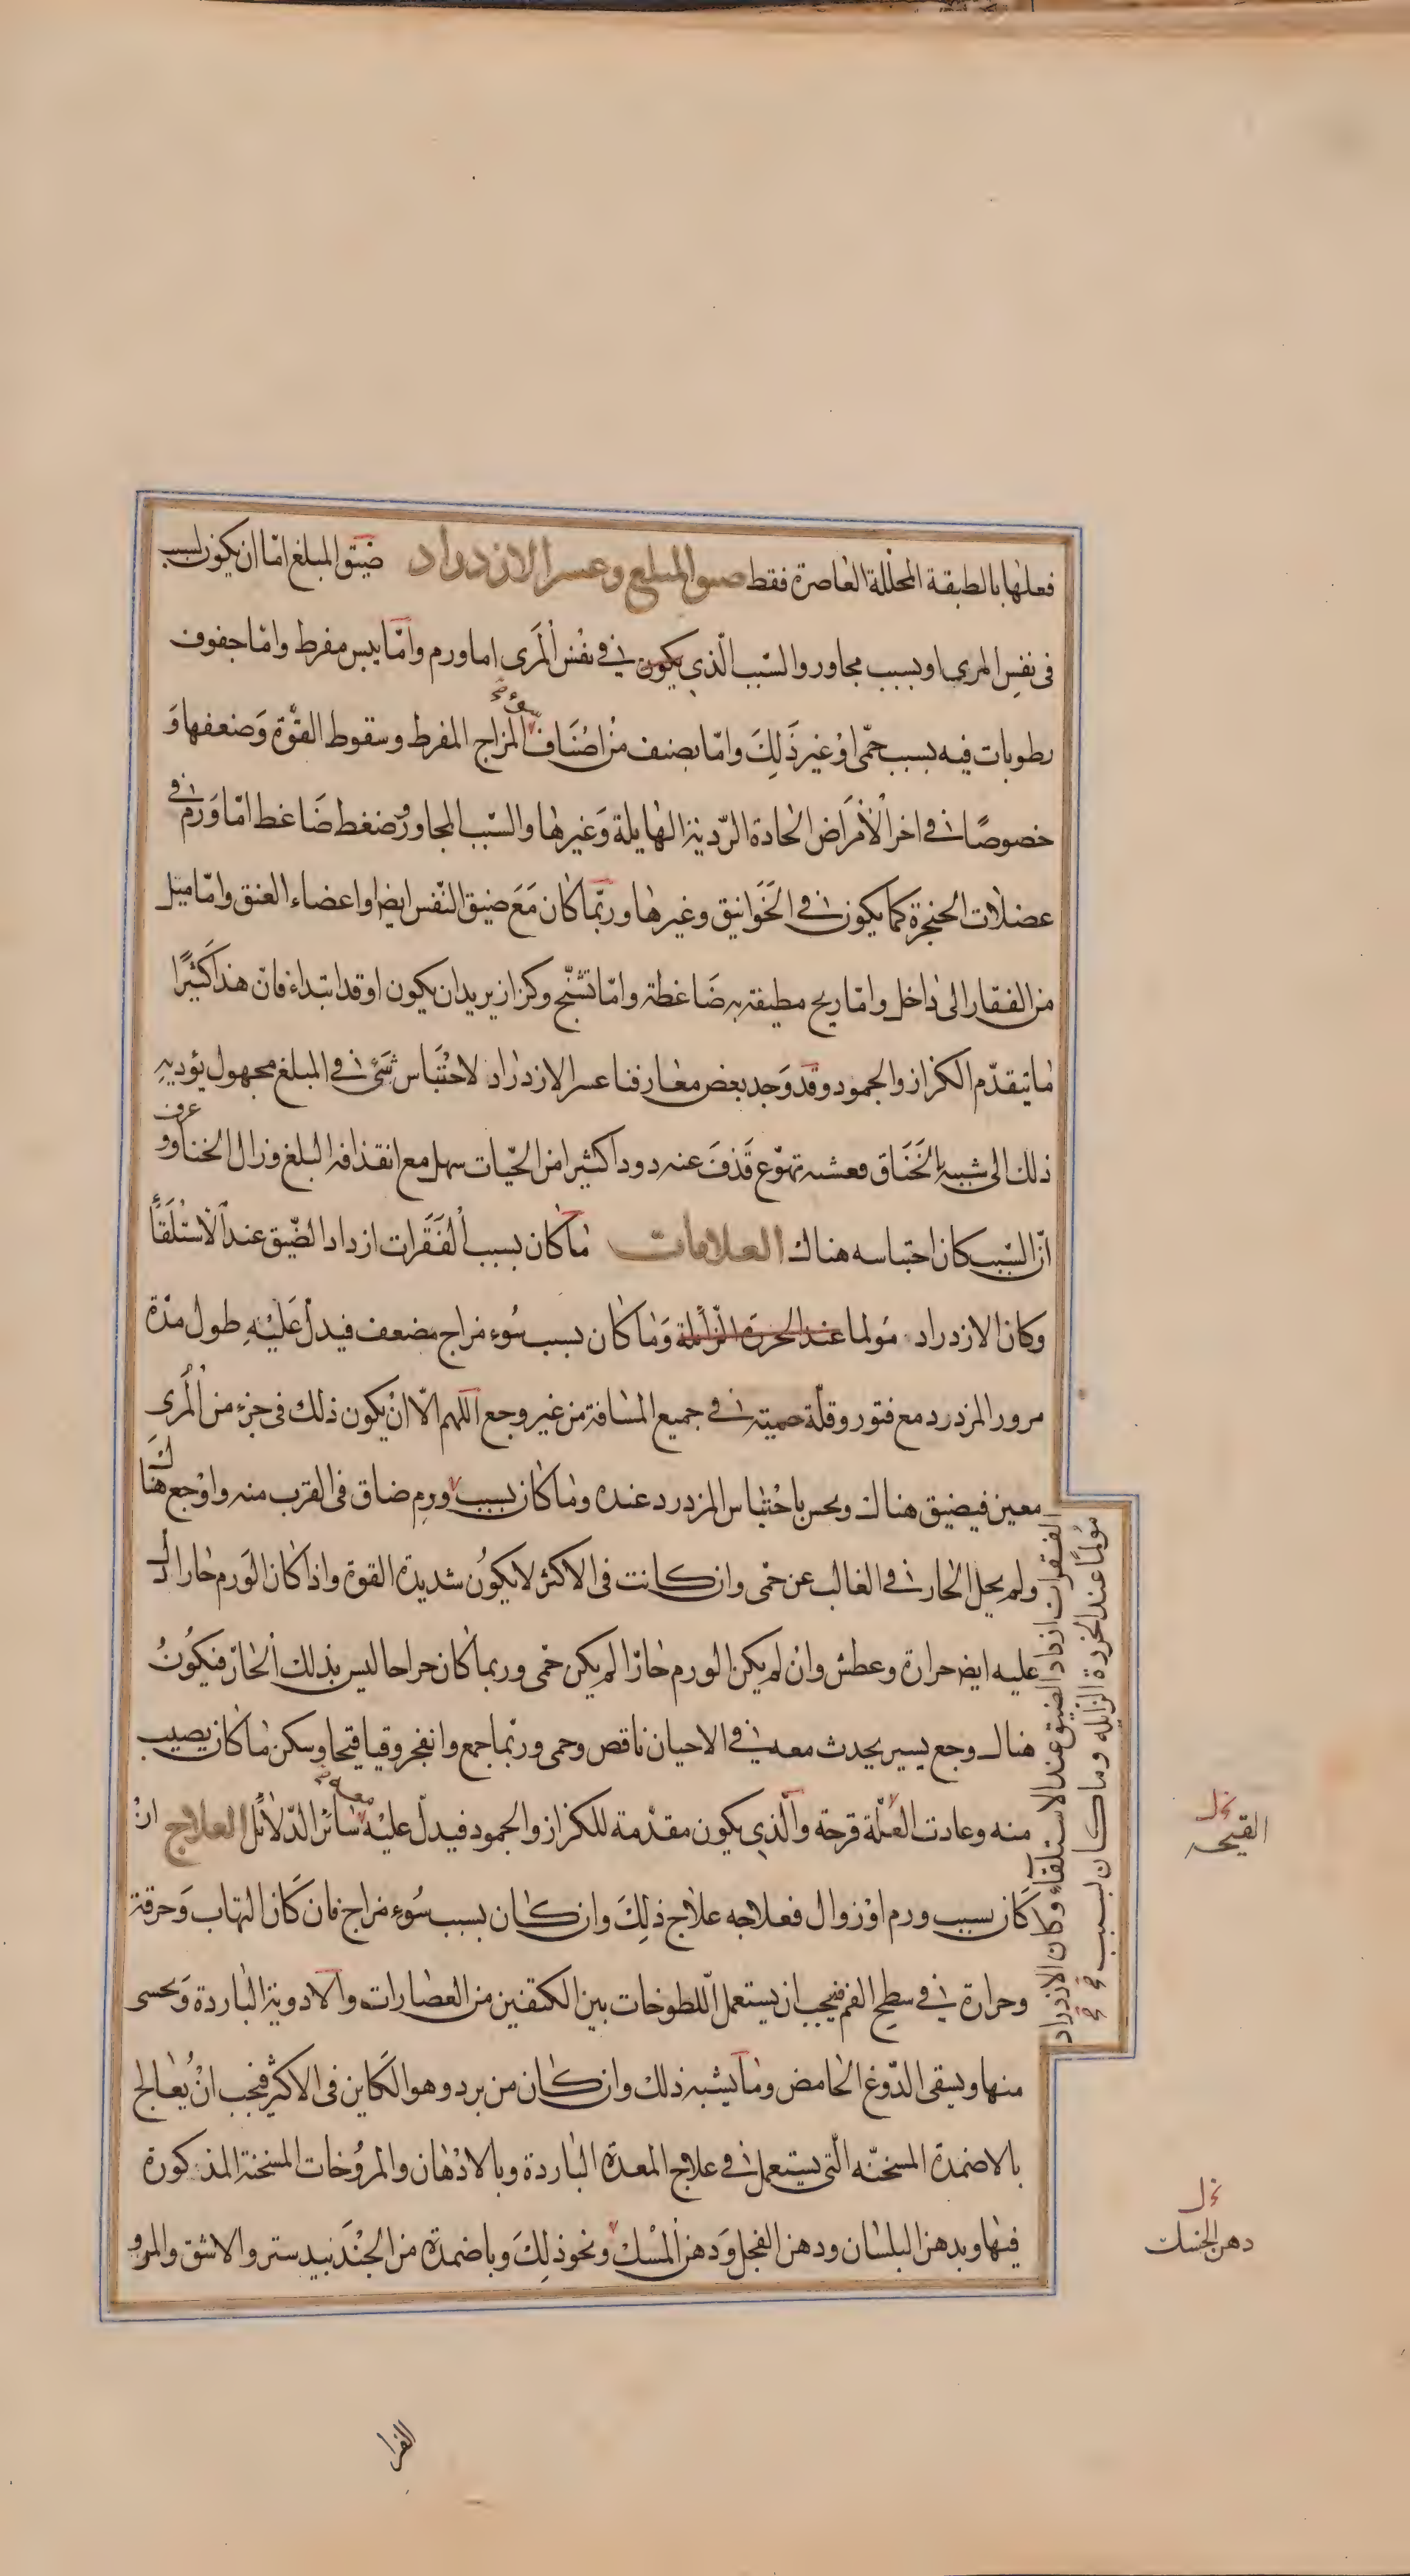 فعلها بالطبقة المحللة العاصرة فقط ضيق المبلع وعسر الازدراد ضيق المبلغ امّا ان يكون لسبب
فى نفس المرى او بسبب مجاور والسّبب الّذى يكون فى نفس المَرى اما ورم وامّا يبس مفرط وامّا جفوف
رطوبات فيه بسبب حمّى اوْ غير ذَلِكَ وامّا بصنف منْ اصْنَاف سوء المزاج المفرط وسقوط القوّة وَضعفها وَ
خصوصًا فى اخر الأمَراض الحادة الرّديئة الهايلة وَغيرها والسّبب المجاور وضغط ضَاغط امّا وَرم فى
عضلات الحنجرة كما يكون فى الخَوَانيق وغيرها وربّما كان مَعَ ضيق النّفس ايضا واعضاء العنق وامّا ميل
من الفقار الى داخل وامّا ريح مطيفة به ضَاغطة وامّا تشنّج وكزاز يريد ان يكون او قد ابتداء فانّ هذا كَثيرًا
ما يتقدّم الكزاز والجمود وقد وَجد بعض معارفنا عسر الازدراد لاحْتبَاس شَئ فى المبلغ مجهول يؤديه
ذلك الى شبيه الخَنَاق فعشيه تهوّع قَذفَ عنه دودا كثيرا من الحيّات سهل مع انقذافه البلغ وزال الخناق و عرف
انّ السّبب كان احتباسه هناك العلامات ما كان بسبب الفَقَرات ازداد الضّيق عند الاسْتلقَاً
وكان الازدراد مَولما عند الحرزة الزّائلة وَما كان بسبب سُوء مزاج مضعف فيدلّ عَليْهِ طول مدّة
مرور المزدرد مع فتور وقلّة حميته فى جميع المسافة من غير وجع اللهم الّا انْ يكون ذلك فى جزء من المُرى
معين فيضيق هناك ويحس باحْتباس المزدرد عنده وما كان بسبب ورمِ ضاق فى القرب منه واوْجع هُنَاكَ
ولم يحل الحار فى الغالب عن حمّى وان كانت فى الاكثر لا يكوُن شديدة القوة واذا كان الوَرم حارا دل
عليه ايضا حرارة وعطش وانْ لم يكن الورم حارّا لم يكن حمّى وربما كان جراحا ليس بذلك الحارّ فيكُونُ
هناك وجع يسير يحدث معه فى الاحيان ناقص وحمى وربّما جمع وانفجر وقيا قيحا وسكن ما كان يصيب
منه وعادت العُلّة قرحة والّذى يكون مقدّمة للكزاز والجمود فيدلّ عليْه معه سائر الدّلائل العلاج انْ
كَان بسبب ورم اوْ زوال فعلاجه علاج ذلِكَ وان كان بسبب سُوء مزاج فان كَان التهاب وَحرقة
وحرارة فى سطح الفم فيجب ان يستعمل اللّطوخات بين الكتفين من العصارات والادوية الباردة وَيحسى
منها ويسقى الدّوغ الحامض وما يشبه ذلك وان كان من برد وهو الكَاين فى الاكثر فيجب انْ يُعالج
بالاضمدة المسخّنه الّتى يستعمل فى علاج المعدة الباردة وبالادْهان والمروُخات المسخنة المذكورة
فيها وبدهن البلسان ودهن الفجل وَدهن المسْك ونحو ذلِكَ وباضمدة من الجُنْدَبيدستر والاشق والمرو
الفقرات ازداد الضيق عند الاستلقاء وكان الازدراد
مؤلمًا عند الخرزة الزايله وما كان بسبب
نخل
القيحه
نخل
الفرا